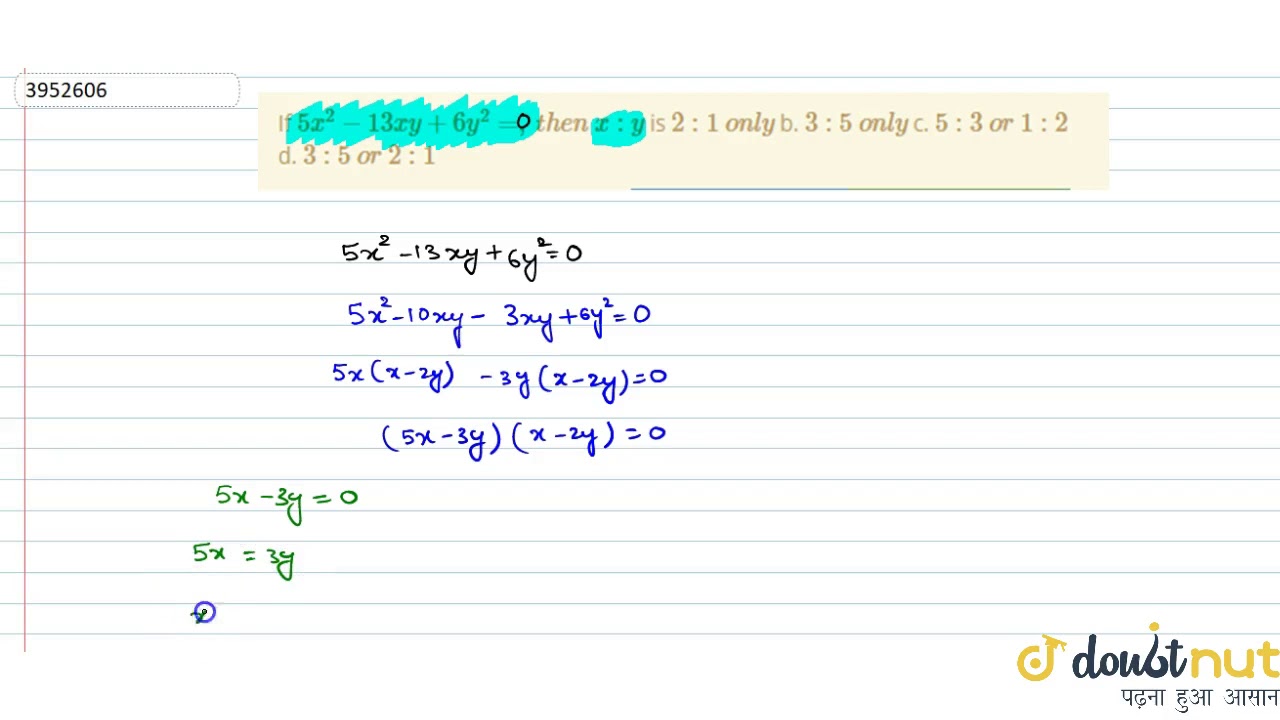 3952606
If 5x² − 13xy + 6y² =, 0 then x : y is 2 : 1 only b. 3 : 5 only c. 5 : 3 or 1 : 2
d. 3 : 5 or 2 : 1
5x² - 13xy + 6y² = 0
5x² - 10xy - 3xy + 6y² = 0
5x (x - 2y) - 3y (x - 2y) = 0
(5x - 3y) (x - 2y) = 0
5x - 3y = 0
5x = 3y
x
doubtnut
पढ़ना हुआ आसान